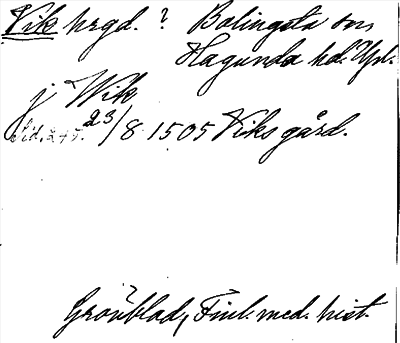 Vik hrgd. ? Balingsta sn
Hagunda hd. Upl.
j Wik
Sid. 245. 23/8 1505 Viks gård.
Grönblad, Finl. med. hist.